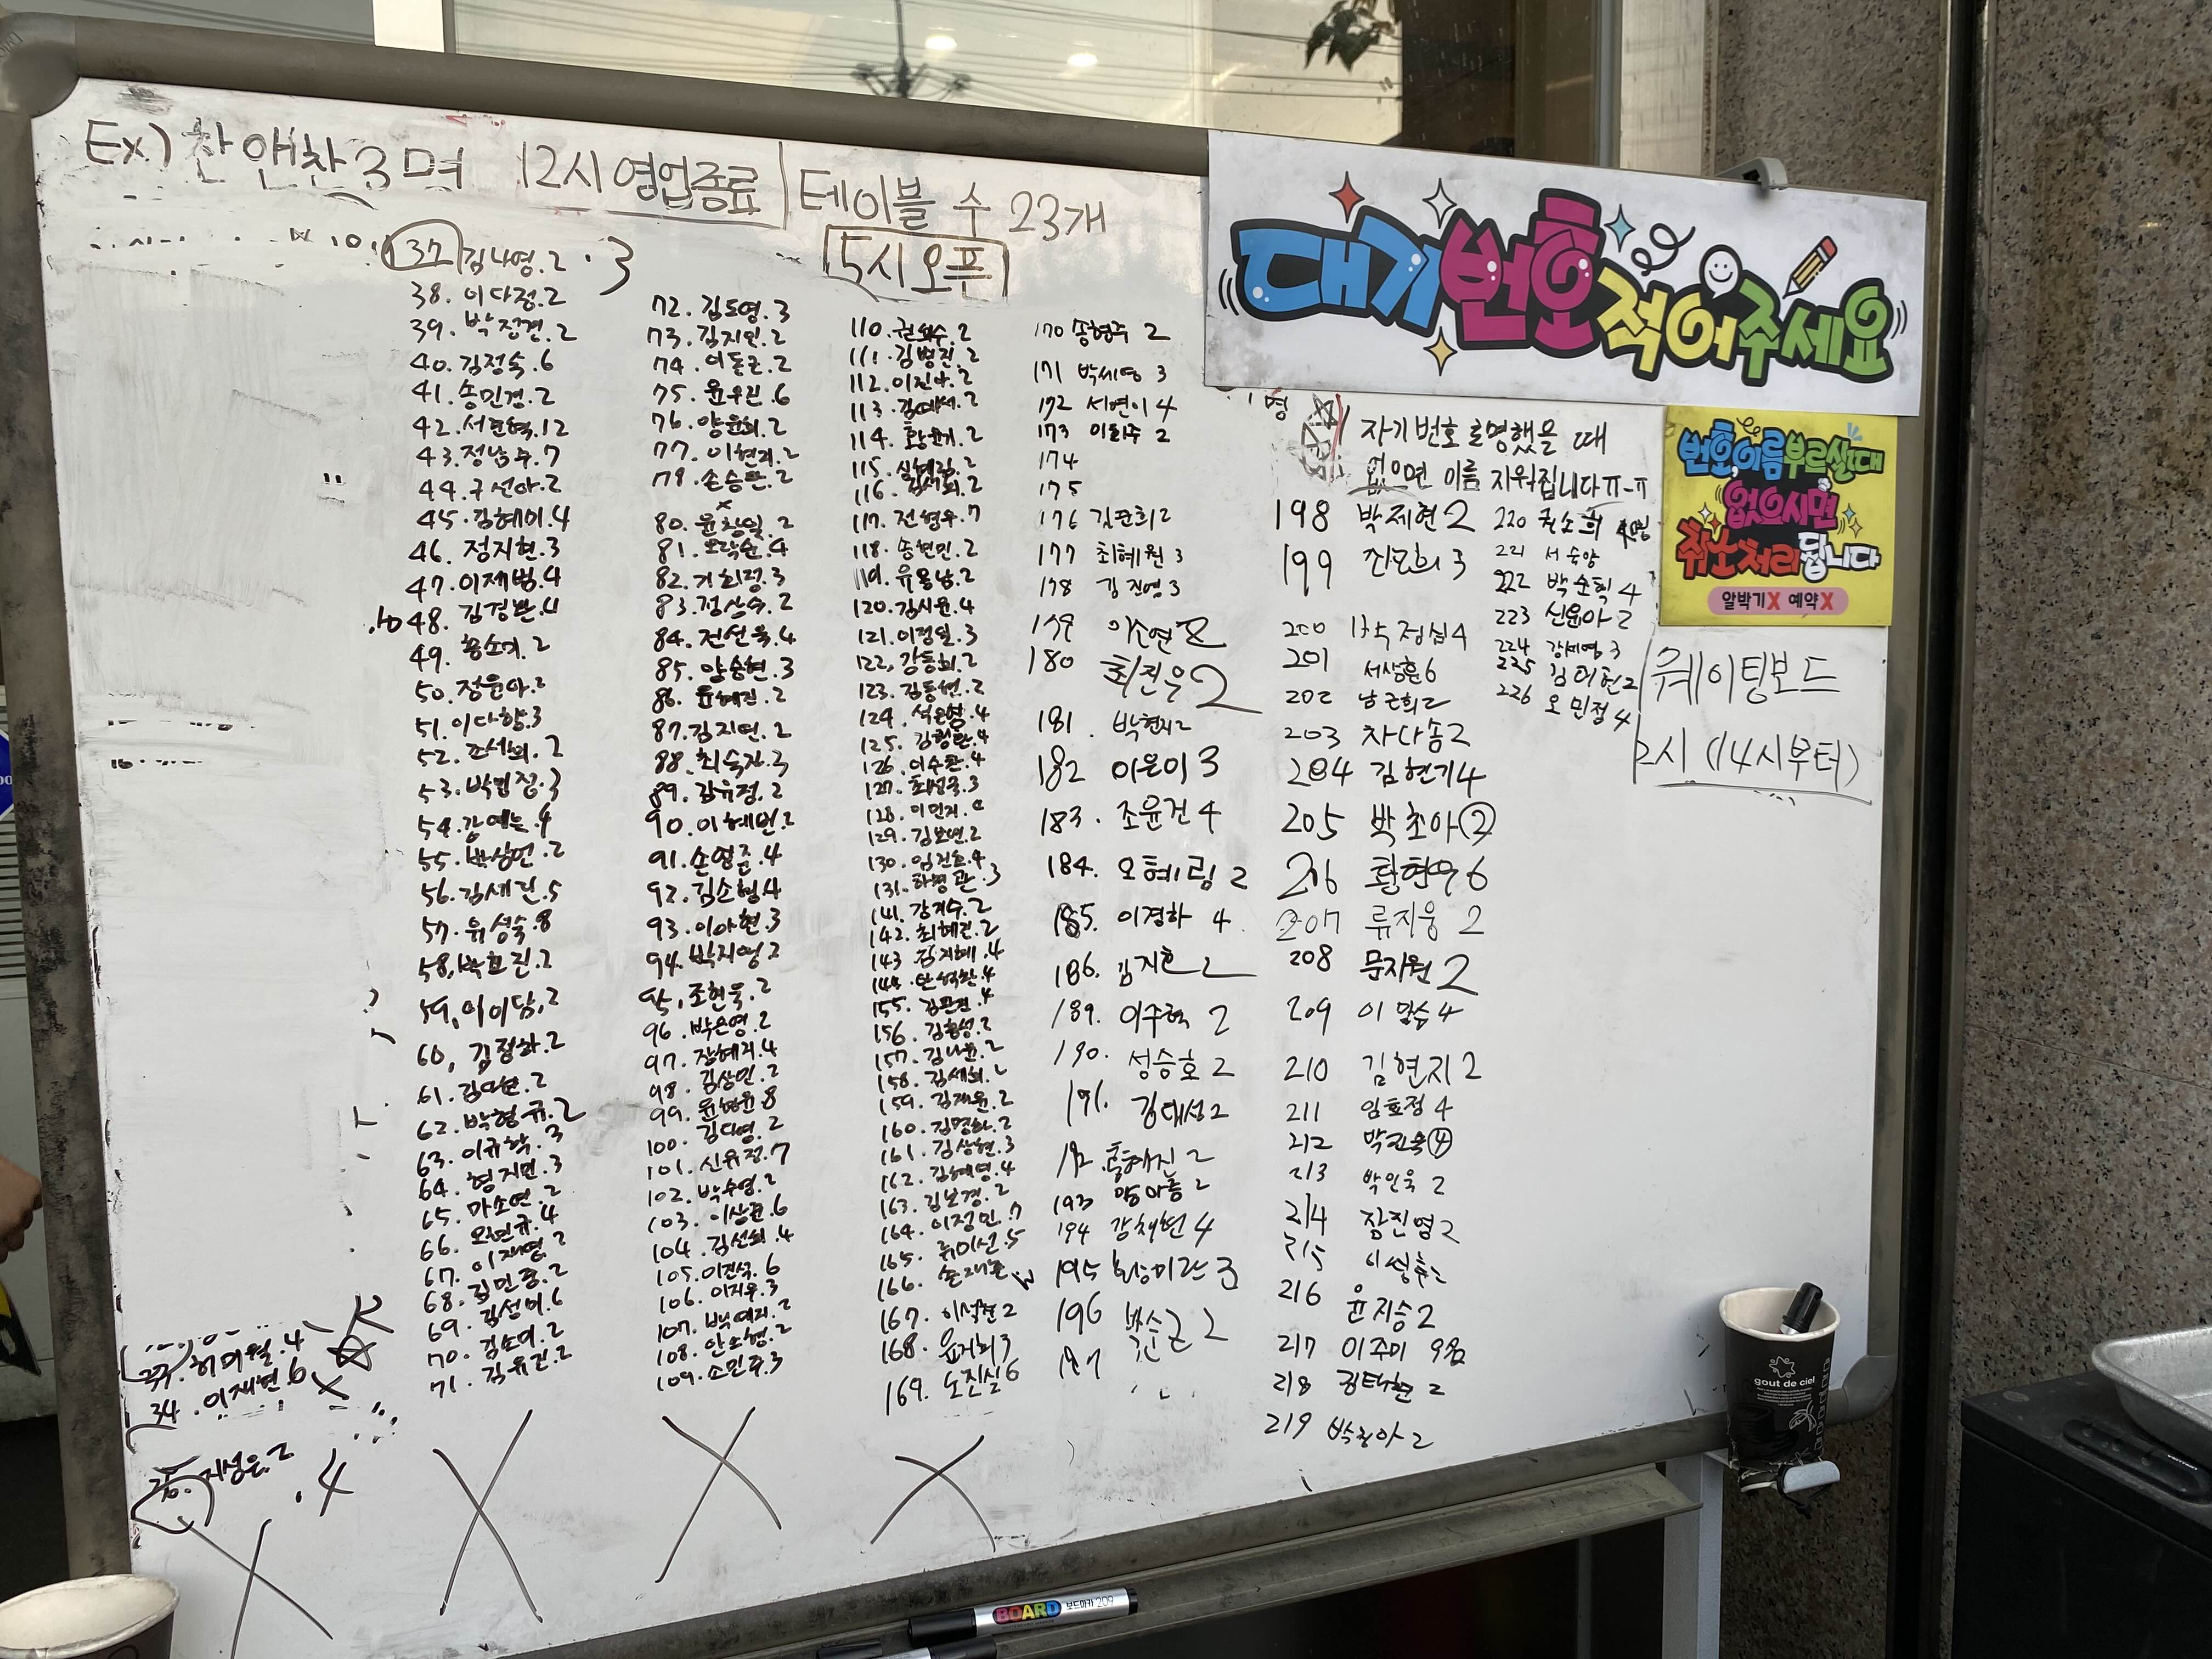 Ex) 찬앤찬 3명
12시 영업종료
테이블 수 23개
5시오픈
대기번호적어주세요
자기번호 호명했을 때
없으면 이름 지워집니다 ㅠ-ㅠ
번호,이름부르실때
없으시면
취소처리됩니다
알박기X 예약X
웨이팅보드
2시 (14시부터)
허미월.4
34. 이재현.6
지성은.2
.4
37 김나영.2 .3
38. 이다정.2
39. 박정현.2
40. 김정숙.6
41. 송민경.2
42. 12
43. 정남주.7
44. 구선아.2
45. 김혜미.4
46. 정지현.3
47. 이제범.4
48. 4
49. 황소미.2
50. 정윤아.2
51. 이다향.3
52. 조서희.2
53. 박민정.3
54. 강예는.4
55. 박상언.2
56. 김세린.5
57. 유성숙.8
58. 박효진.2
59. 이이담.2
60. 김정하.2
61. 2
62. 박형규.2
63. 이규학.3
64. 형지민.3
65. 마소연.2
66. 4
67. 이재영.2
68. 김민중.2
69. 김성미.6
70. 김소미.2
71. 김유진.2
72. 김도영.3
73. 김지원.2
74. 이동근.2
75. 6
76. 양윤희.2
77. 이현지.2
79. 손승환.2
80. 윤창일.2
81. 4
82. 3
83. 정상수.2
84. 전선욱.4
85. 양승현.3
86. 윤혜진.2
87. 김지연.2
88. 최숙자.3
89. 김유정.2
90. 이혜빈.2
91. 손영준.4
92. 김소형.4
93. 이아현.3
94. 박지영.2
95. 조현욱.2
96. 박은영.2
97. 장혜리.4
98. 김상민.2
99. 8
100. 김다영.2
101. 신유정.7
102. 박수영.2
103. 이상균.6
104. 김선희.4
105. 이진석.6
106. 이지우.3
107. 박예지.2
108. 안소형.2
109. 소민주.3
110. 2
111. 김병진.2
112. 이진아.2
113. 김예서.2
114. 황윤기.2
115. 심혜림.2
116. 2
117. 전형우.7
118. 송현민.2
119. 유용남.2
120. 김시윤.4
121. 이정일.3
122. 강동희.2
123. 김동선.2
124. 4
125. 4
126. 이수환.4
127. 3
128. 이민지.
129. 김보연.2
130. 임진호.4
131. 3
141. 강지수.2
142. 최혜진.2
143 김지혜.4
144. 안석환.4
155. 4
156. 김효성.2
157. 김나윤.2
158. 김세희.2
159. 김재윤.2
160. 김명하.2
161. 김상현.3
162. 김혜영.4
163. 김보경.2
164. 이정민.7
165. 류미선.5
166.
167. 이석현 2
168. 윤지희 3
169. 노진실 6
170 송형주 2
171 박세영 3
172 서연이 4
173 이희주 2
174
175
176 김문희 2
177 최혜원 3
178 김진영 3
179 이소연 2
180 최진우 2
181. 박현지 2
182 이윤이 3
183. 조윤건 4
184. 오혜림 2
185. 이경하 4
186. 김지호 2
189. 이수혁 2
190. 성승호 2
191. 김대성 2
192. 2
193 2
194 강채현 4
195 황미란 3
196 박수근 2
197
198 박제현 2
199 진문희 3
200 박정심 4
201 서상훈 6
202 남근희 2
203 차다솜 2
204 김현기 4
205 박초아 2
206 황현우 6
207 류지웅 2
208 문자원 2
209 4
210 김현지 2
211 임효정 4
212 박진욱 4
213 박인욱 2
214 장진영 2
215
216 윤지승 2
217 이주미 9명
218 김태현 2
219 박청아 2
220 권소희
221 서숙양
222 박순희 4
223 신윤아 2
224 강세영 3
225 2
226 오민정 4
gout de ciel
BOARD 보드마카 209